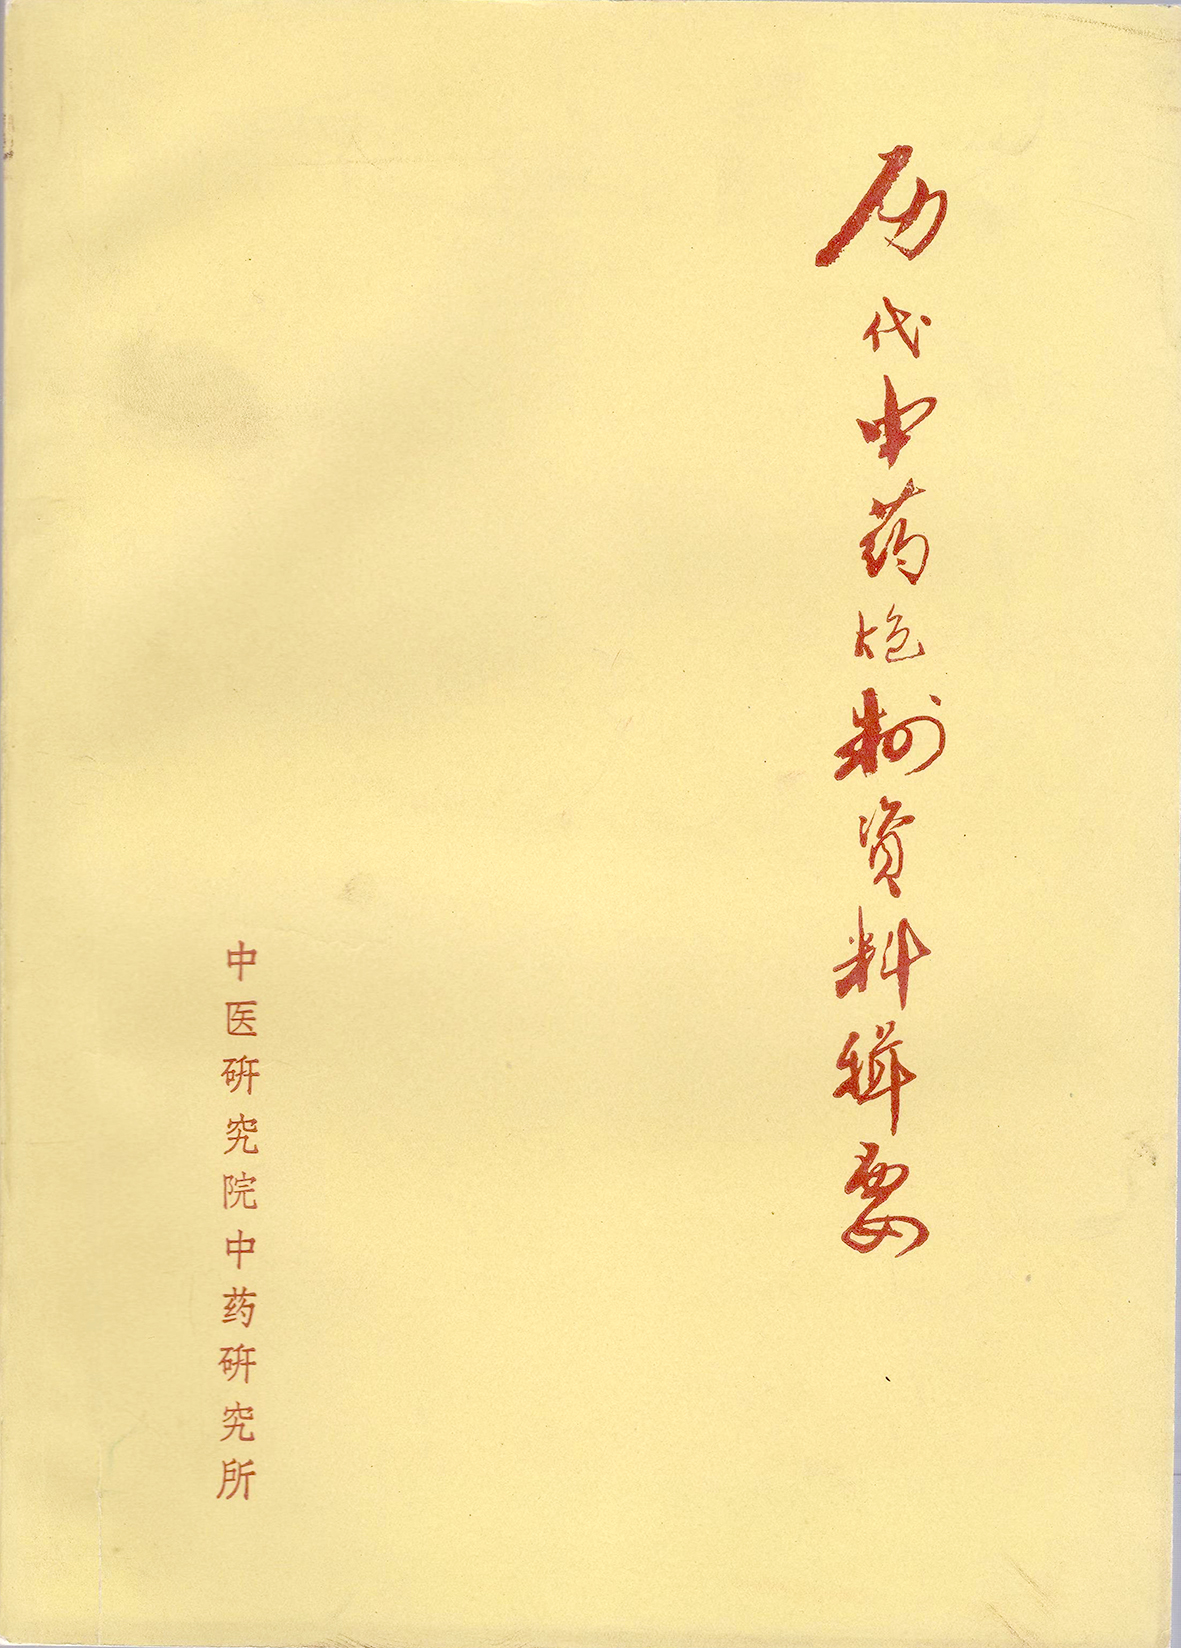 历代中药炮制资料辑要
中医研究院中药研究所